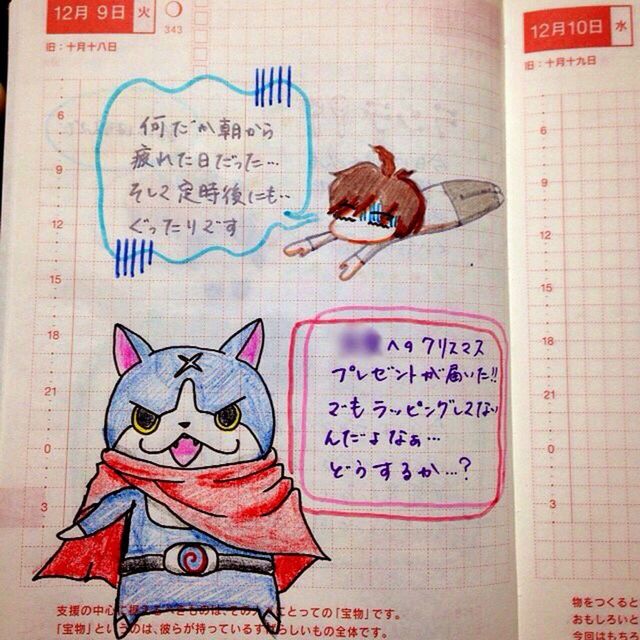 12月 9日 火
343
旧：十月十八日
12月10日 水
旧：十月十九日
何だか朝から
疲れた日だった…
そして定時後にも…
ぐったりです
6
9
12
15
18
21
0
3
への クリスマス
プレゼントが届いた!!
でもラッピングしてない
んだよなぁ…
どうするか…?
6
9
12
15
18
21
0
3
支援の中心に
ものは、その
とっての「宝物」です。
「宝物」というのは、彼らが持っているす
らしいもの全体です。
物をつくると
おもしろいと
今回はもちろ